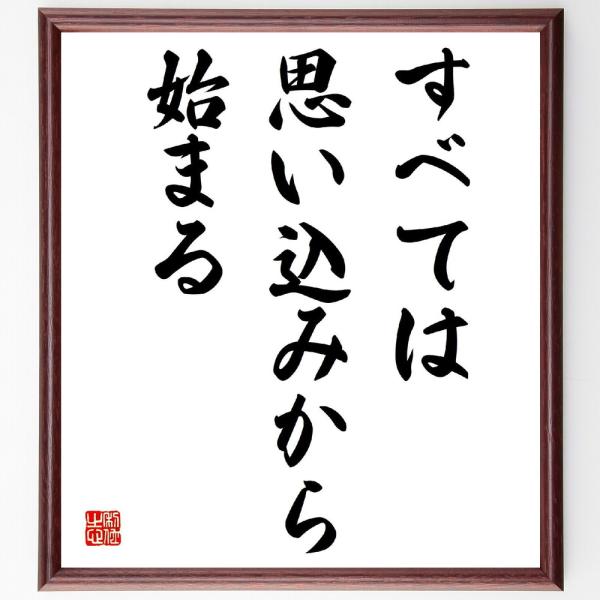 すべては
思い込みから
始まる